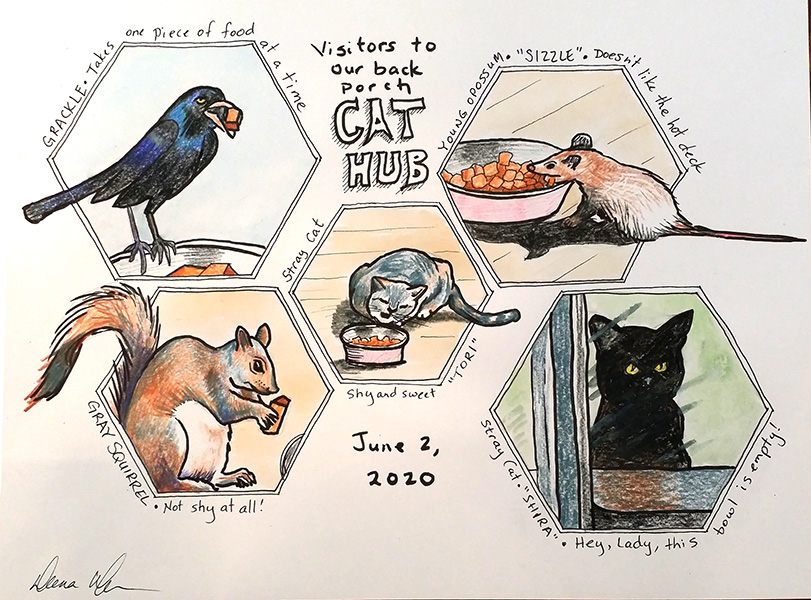 Visitors to
our back
porch
CAT
HUB
GRACKLE • Takes one piece of food at a time
YOUNG OPOSSUM • "SIZZLE" • Doesn't like the hot deck
Stray Cat
"TORI"
Shy and sweet
GRAY SQUIRREL • Not shy at all!
Stray Cat • "SHIRA" • Hey, Lady, this bowl is empty!
June 2,
2020
Deena